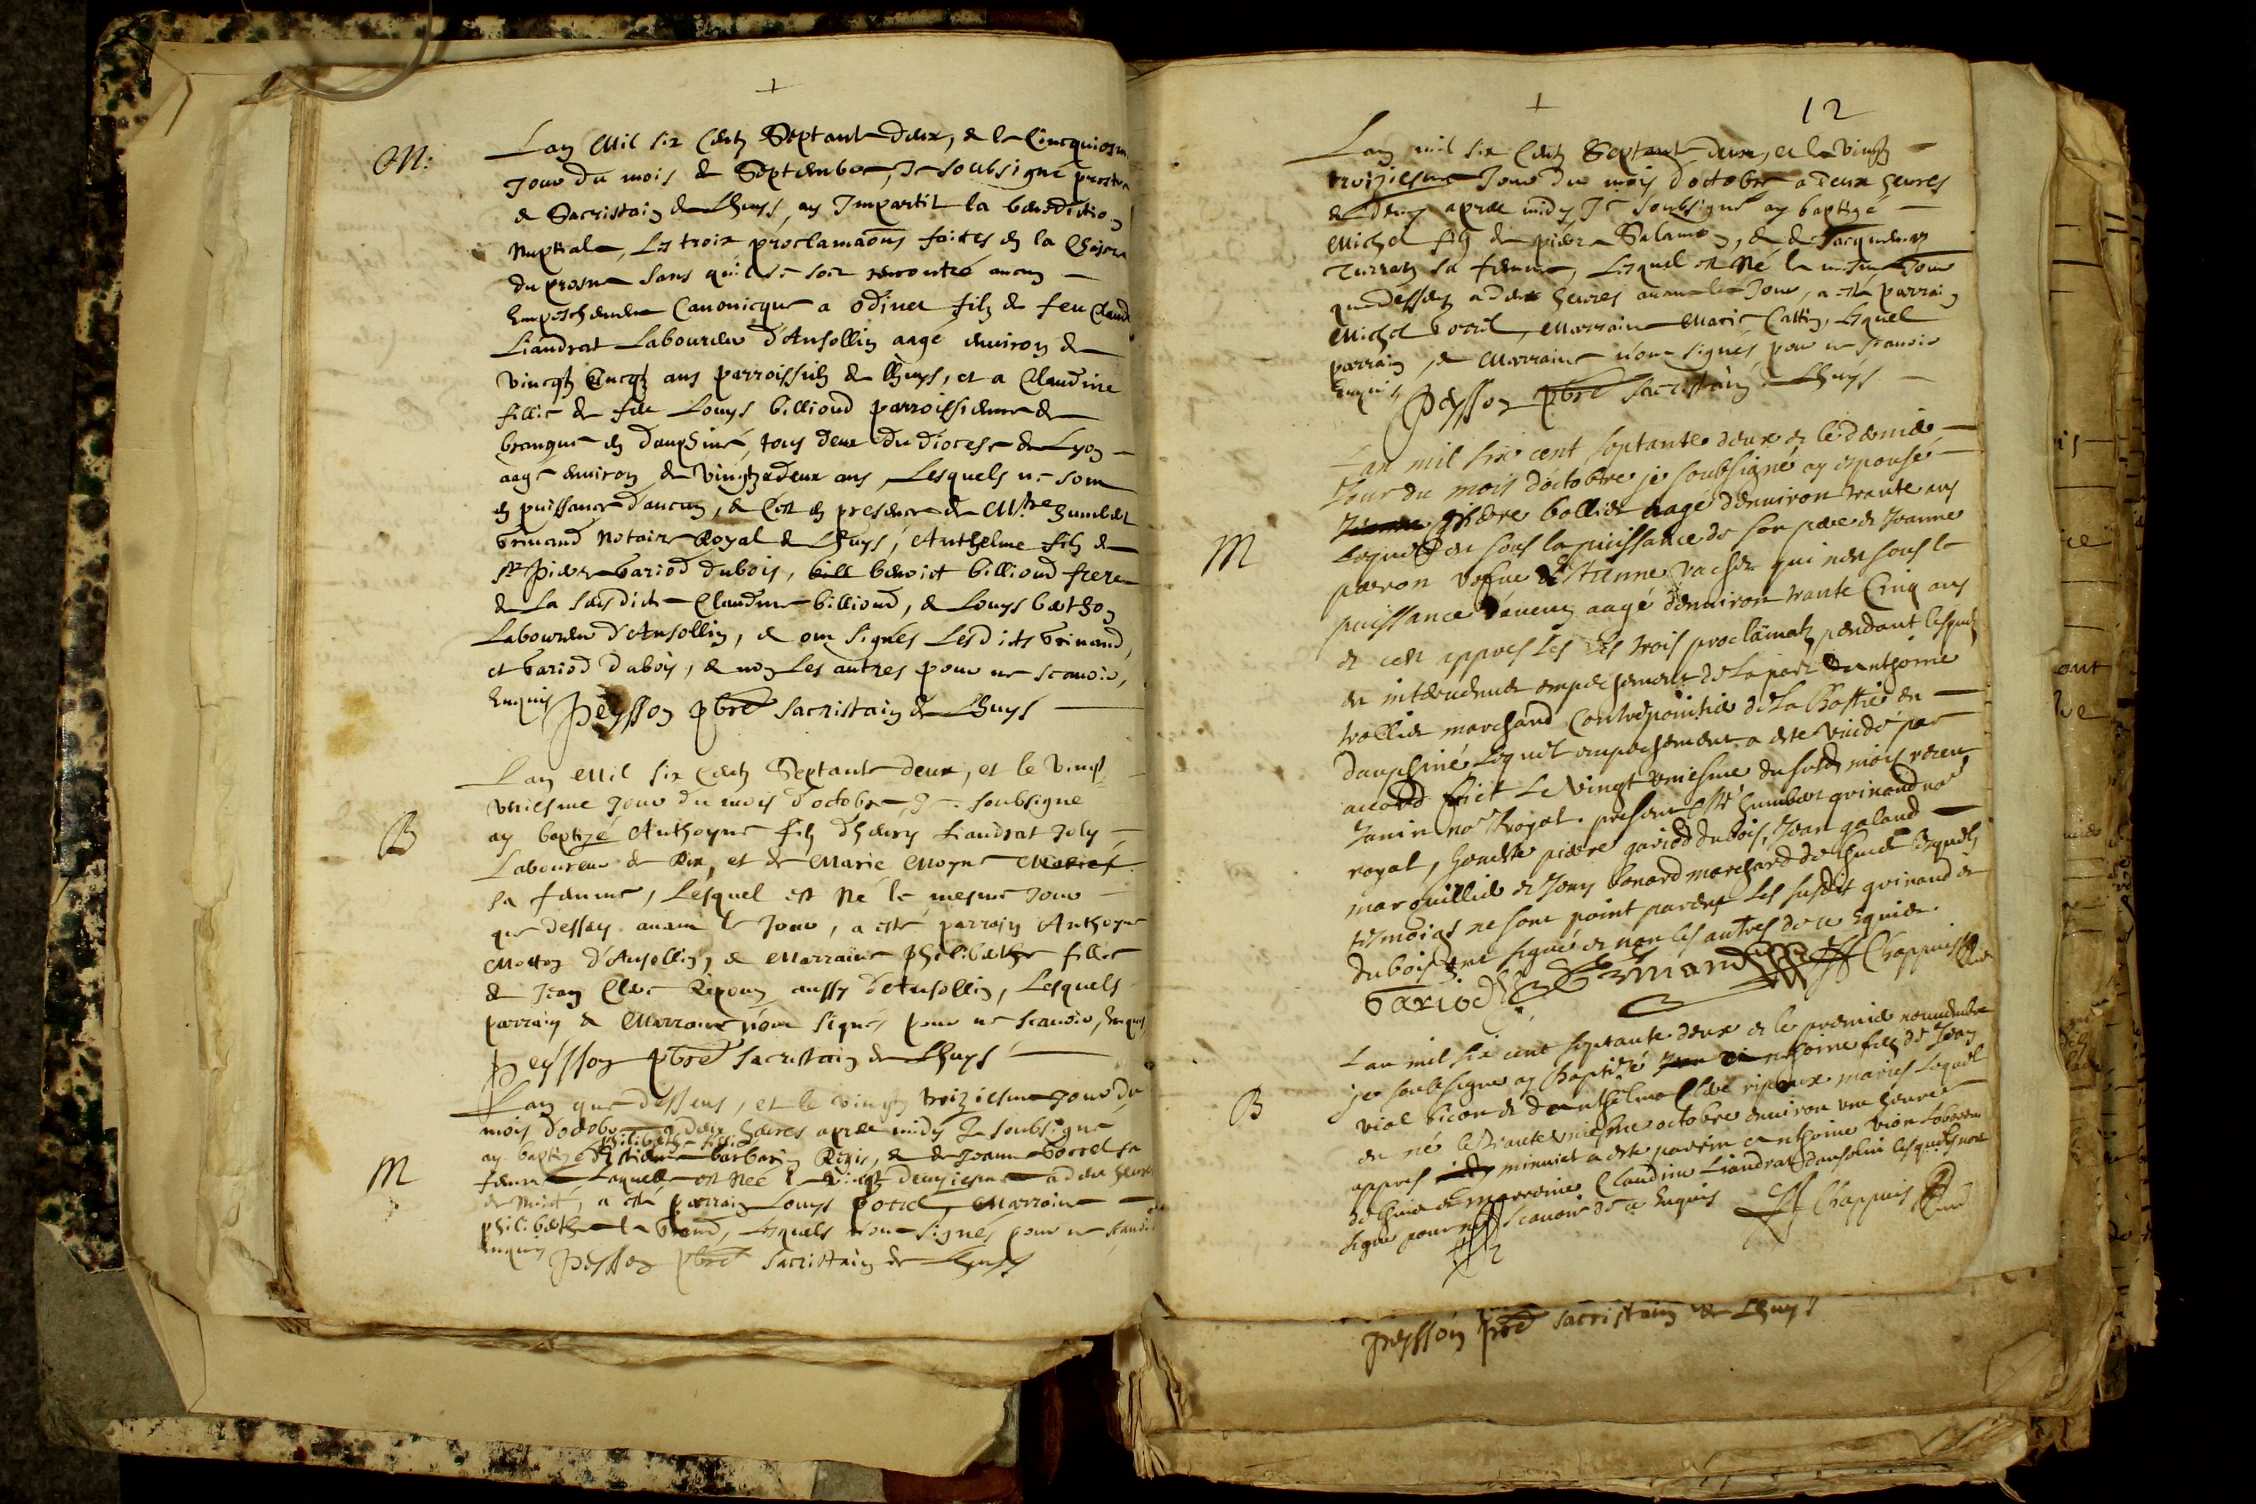 M:
Lan Mil six Centz Septante deux, & le Cincquiesm
Jour du mois de Septembre, Je soubsigné prestre
& Sacristain de Lhuys, ay Impartit la benediction
Nuptiale, Les trois proclamaõns faictes en la Chaire
du prosne sans quil se soit rencontré aucun
Empeschement Canonicque a odinet filz de feu Claude
Liandrat Laboureur d'Ansollin aagé environ de
Vincqtz Cincqtz ans parroissien de Lhuys, et a Claudine
fillie de feu Louys billioud parroissienne de
brangue en dauphiné, tous deux du diocese de Lyon
aagé environ de Vingtz & deux ans, Lesquels ne sont
en puissance d'aucun, & C'est en presence de Mtre humbert
Grinand Notaire Royal de Lhuys, Anthelme filz de
Sr Pierre Gariod dubois, bill benoist billioud frere
de La susdicte Claudine billioud, & Louys berthon
Laboureur d'Ansollin, & ont signés Lesdicts Grinand,
et Gariod dubois, & non Les autres pour ne scavoir,
Enquis Peysson pbre Sacristain de Lhuys
B
Lan Mil six Centz Septante deux, et le Vingt
Uniesme Jour du mois d'octobre Je soubsigne
ay baptizé Anthoyne filz d'henry Liandrat Joly
Laboureur de Rix, et de Marie Moyne
sa femme, Lesquel est Né le mesme Jour
que dessey avant le Jour, a esté parrain Anthoyne
Motton d'Ansollin, & Marraine Philiberthe fillie
de Jean Clerc Ripoux aussy d'Ansollin, Lesquels
parrain & Marraine n'ont signés pour ne scavoir, Enquis
Peysson pbre Sacristain de Lhuys
M
Lan que dessus, et le vingtz troiziesme Jour du
mois d'octobre a deux heures apres midy Je soubsigne
philiberthe fillie
ay baptizé d'Estienne barbarin Regis, & de Joanne Borrel sa
femme Laquelle est Née le Vingtz deuziesme a deux heures
de Nuict, a esté parrain Louys Borrel, Marraine
philiberthe Grand, Lesquels n'ont signés pour ne scavoir
Enquis Peysson pbre Sacristain de Lhuys
12
Lan mil six Centz Septante deux, et le vingtz
troiziesme Jour du mois d'octobre a deux heures
& demy apres midy Je soubsigné ay baptizé
Michel filz de pierre Salamon, & de Jacquemaz
Turraz sa femme, Lequel est Né le mesme Jour
que dessey a deux heures avant le Jour, a esté parrain
Michel Borrel, Marraine Marie Cattin, Lequel
parrain, & Marraine n'ont signés pour ne scavoir
Enquis Peysson pbre Sacristain Lhuys
M
Lan mil six cent septante deux et le dernier
Jour du mois d'octobre je soubsigné ay espousé
pierre bollier aagé d'environ trante ans
lequel est sous la puissance de son pere et Joanne
perron vefve d'Estienne vacher qui nest sous la
puissance d'aucun aagé d'environ trante Cinq ans
et cest appres les trois proclamatz pendant lesquelz
est intervenu empechement de la part d'anthoine
trollier marchand Contrepointier de la Bastie en
dauphiné lequel empechement a esté vuidé par
accord faict Le vingt uniesme du susdt mois receu
Janin nore Royal. presents Mre humbert grinand nore
royal, honeste pierre gariod dubois, Jean galand
marguillier et Jean bonard marchand de Lhuis lesquelz
tesmoigs ne sont point parents les susdits grinand et
dubois ont signé et non les autres de ce Enquis.
Gariod Grinand Chappuis
B
Lan mil six cent septante deux et le premier novembre
je soubsigne ay baptizé anthoine filz de Jean
vial bicon et d'anthelma Clerc ripoux mariés lequel
est né le trante uniesme octobre environ une heure
appres minuict a esté parrin anthoine vion laboureur
de Lhuis & marraine Claudine Liandrat d'ansolin lesquels n'ont
signé pour ne scavoir de ce Enquis Chappuis
Peysson pbre Sacristain de Lhuys